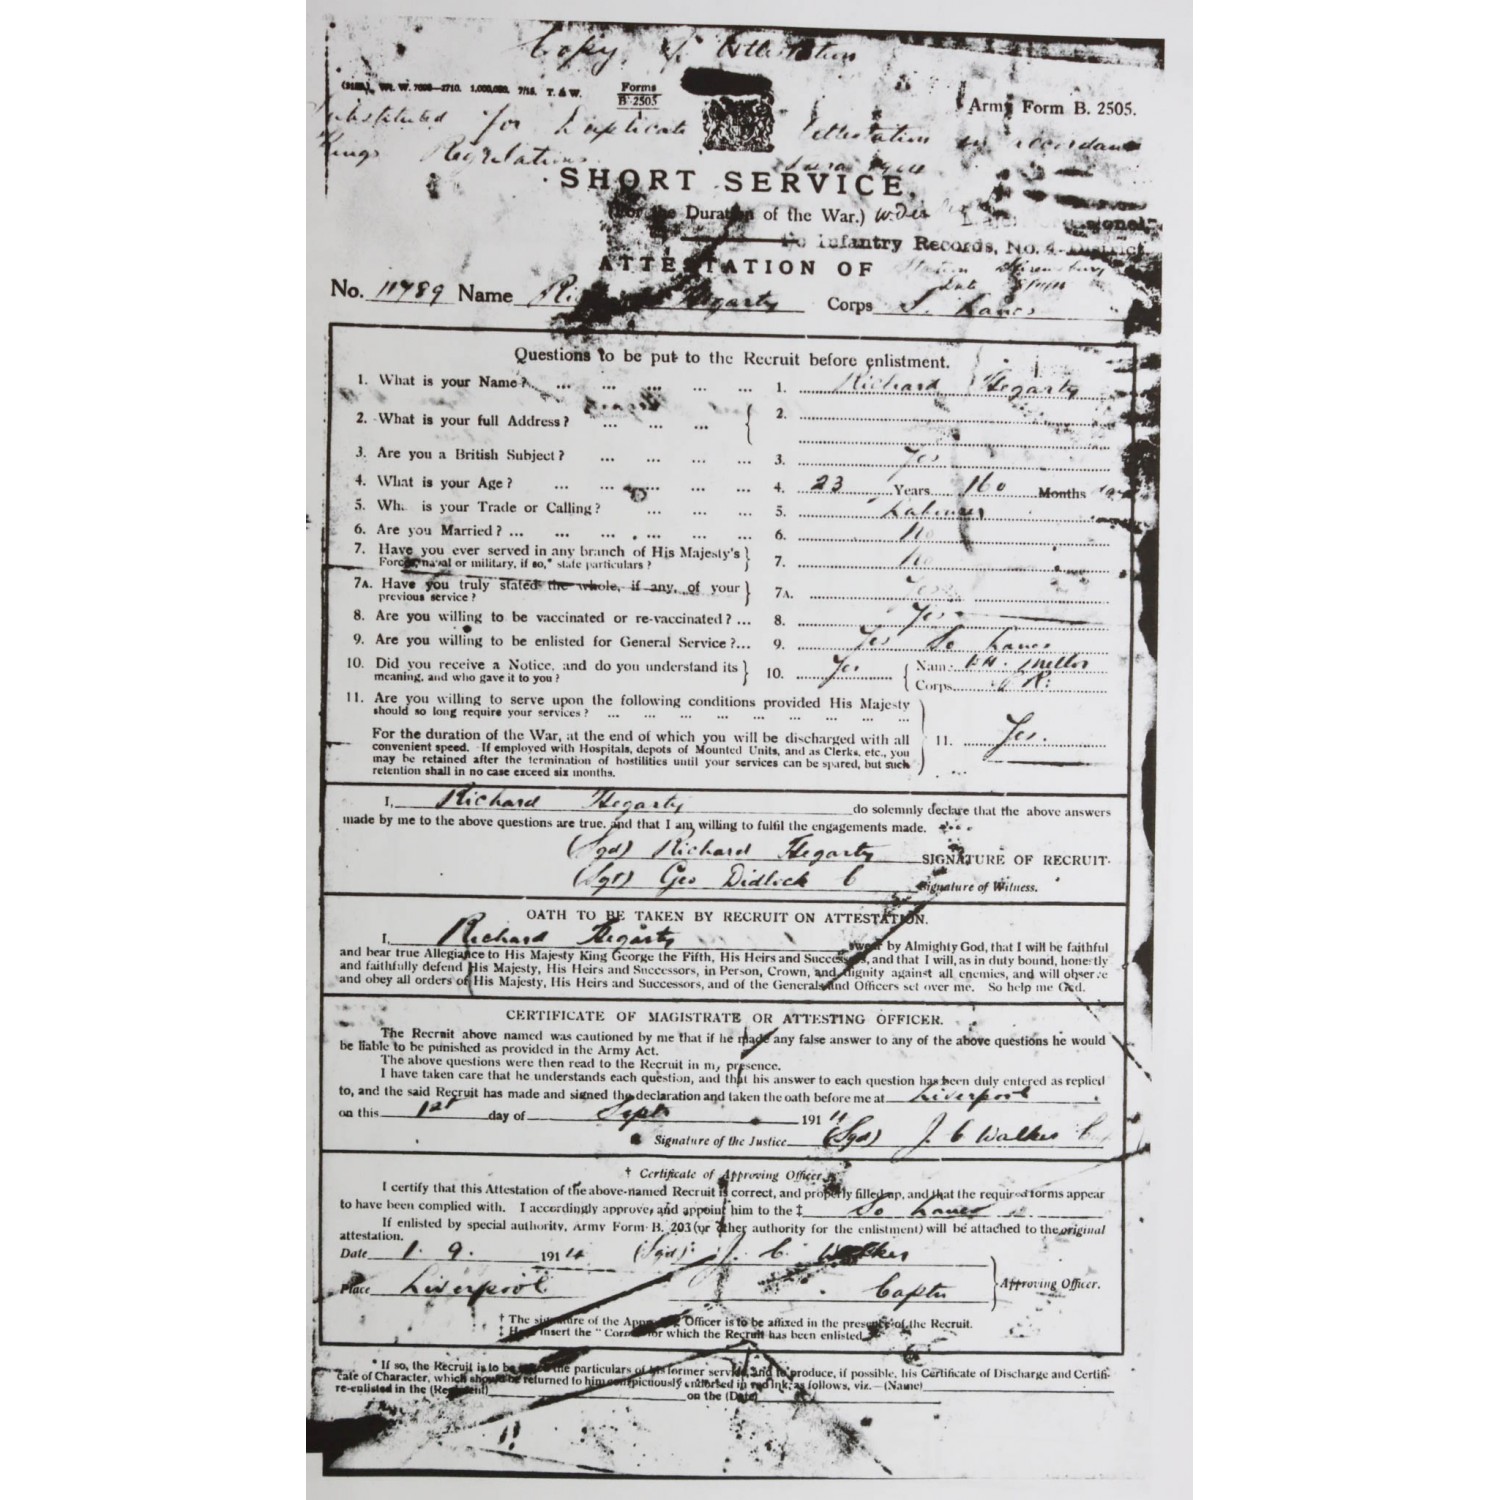 Copy of Attestation
Forms
B. 2505
1,000,000. 7/15. T. & W.
Army Form B. 2505.
for Duplicate Attestation in accordance
Kings Regulations
SHORT SERVICE.
(For the Duration of the War.)
Infantry Records, No. 4 District
ATTESTATION OF
No. 11789 Name Hegarty Corps S. Lancs
Questions to be put to the Recruit before enlistment.
1. What is your Name? ... ... ... ... ... 1. Richard Hegarty
2. What is your full Address? ... ... ... 2.
3. Are you a British Subject? ... ... ... ... 3. Yes
4. What is your Age? ... ... ... ... ... 4. 23 Years 160 Months
5. is your Trade or Calling? ... ... ... 5. Labourer
6. Are you Married? ... ... ... ... ... ... 6. No
7. Have you ever served in any branch of His Majesty's
Forces, naval or military, if so,* state particulars? 7. No
7A. Have you truly stated the whole, if any, of your
previous service? 7A. Yes
8. Are you willing to be vaccinated or re-vaccinated? ... 8. Yes
9. Are you willing to be enlisted for General Service?... 9. Yes So Lancs
10. Did you receive a Notice, and do you understand its
meaning, and who gave it to you? 10. Yes Name
Corps
11. Are you willing to serve upon the following conditions provided His Majesty
should so long require your services? ... ... ... ... ... ... ... ...
For the duration of the War, at the end of which you will be discharged with all
convenient speed. If employed with Hospitals, depots of Mounted Units, and as Clerks, etc., you
may be retained after the termination of hostilities until your services can be spared, but such
retention shall in no case exceed six months. 11. Yes.
I, Richard Hegarty do solemnly declare that the above answers
made by me to the above questions are true, and that I am willing to fulfil the engagements made.
(Sgd) Richard Hegarty SIGNATURE OF RECRUIT.
(Sgt) Geo Didlick Signature of Witness.
OATH TO BE TAKEN BY RECRUIT ON ATTESTATION.
I, Richard Hegarty swear by Almighty God, that I will be faithful
and bear true Allegiance to His Majesty King George the Fifth, His Heirs and Successors, and that I will, as in duty bound, honestly
and faithfully defend His Majesty, His Heirs and Successors, in Person, Crown, and dignity against all enemies, and will observe
and obey all orders of His Majesty, His Heirs and Successors, and of the Generals and Officers set over me. So help me God.
CERTIFICATE OF MAGISTRATE OR ATTESTING OFFICER.
The Recruit above named was cautioned by me that if he made any false answer to any of the above questions he would
be liable to be punished as provided in the Army Act.
The above questions were then read to the Recruit in my presence.
I have taken care that he understands each question, and that his answer to each question has been duly entered as replied
to, and the said Recruit has made and signed the declaration and taken the oath before me at Liverpool
on this 1st day of Sept 191
Signature of the Justice (Sgd) J. C Walker
† Certificate of Approving Officer.
I certify that this Attestation of the above-named Recruit is correct, and properly filled up, and that the required forms appear
to have been complied with. I accordingly approve, and appoint him to the ‡ So Lancs
If enlisted by special authority, Army Form B. 203 (or other authority for the enlistment) will be attached to the original
attestation.
Date 1. 9. 1914 (Sgd) J. C. Walker
Place Liverpool Captn Approving Officer.
† The signature of the Approving Officer is to be affixed in the presence of the Recruit.
‡ Here insert the "Corps" for which the Recruit has been enlisted.
* If so, the Recruit is to be asked the particulars of his former service, and to produce, if possible, his Certificate of Discharge and Certifi-
cate of Character, which should be returned to him conspicuously endorsed in red ink, as follows, viz.—(Name)
re-enlisted in the (Regiment) on the (Date)